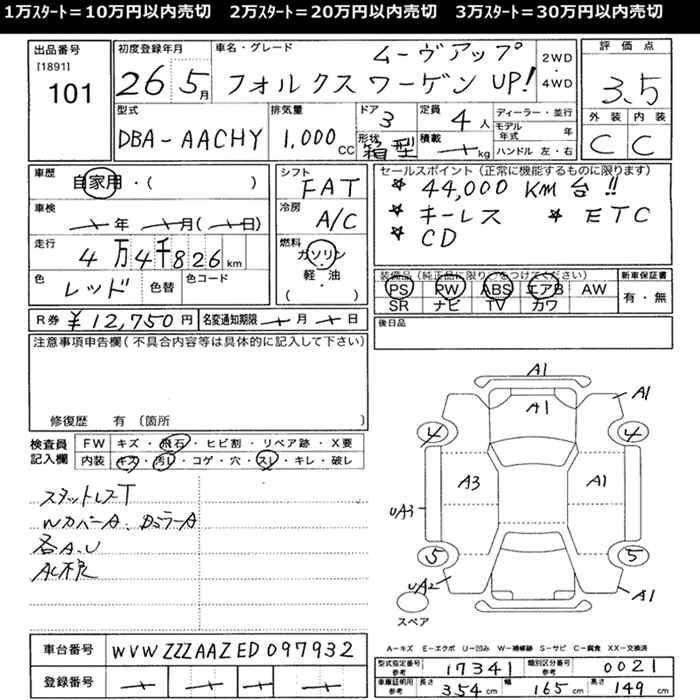 1万ｽﾀｰﾄ＝10万円以内売切　2万ｽﾀｰﾄ＝20万円以内売切　3万ｽﾀｰﾄ＝30万円以内売切
出品番号 [1891] 101
初度登録年月 26 5月
車名・グレード ムーヴアップ
フォルクスワーゲン UP!
2WD・4WD
評価点 3.5
外装 C 内装 C
型式 DBA-AACHY
排気量 1,000cc
ドア 3
形状 箱型
定員 4人
積載 kg
ディーラー・並行
モデル年式 年
ハンドル 左・右
車歴 自家用・( )
車検 年 月( 日)
走行 4万4千826km
色 レッド 色替 色コード
シフト FAT
冷房 A/C
燃料 ガソリン・軽・油 ( )
セールスポイント(正常に機能するものに限ります)
☆ 44,000 KM台!!
☆ キーレス ☆ ETC
☆ CD
装備品(純正品に限り○をつけてください)
PS PW ABS エアB AW
SR ナビ TV カワ
新車保証書 有・無
R券 ¥12,750円 名変通知期限 月 日
後日品
注意事項申告欄(不具合内容等は具体的に記入して下さい)
修復歴 有(箇所 )
検査員記入欄
FW キズ・飛石・ヒビ割・リペア跡・X要
内装 キズ・汚レ・コゲ・穴・スレ・キレ・破レ
スタットレスT
WカバーA、DミラーA
各A、U
AC不良
A1
A1
A1
4
4
A3
A1
UA3
5
5
UA2
A1
スペア
A－キズ E－エクボ U－凹み W－補修跡 S－サビ C－腐食 XX－交換済
車台番号 WVWZZZAAZED097932
登録番号
型式指定番号 参考 17341 類別区分番号 参考 0021
車庫証明用 参考 長さ 354cm 幅 165cm 高さ 149cm